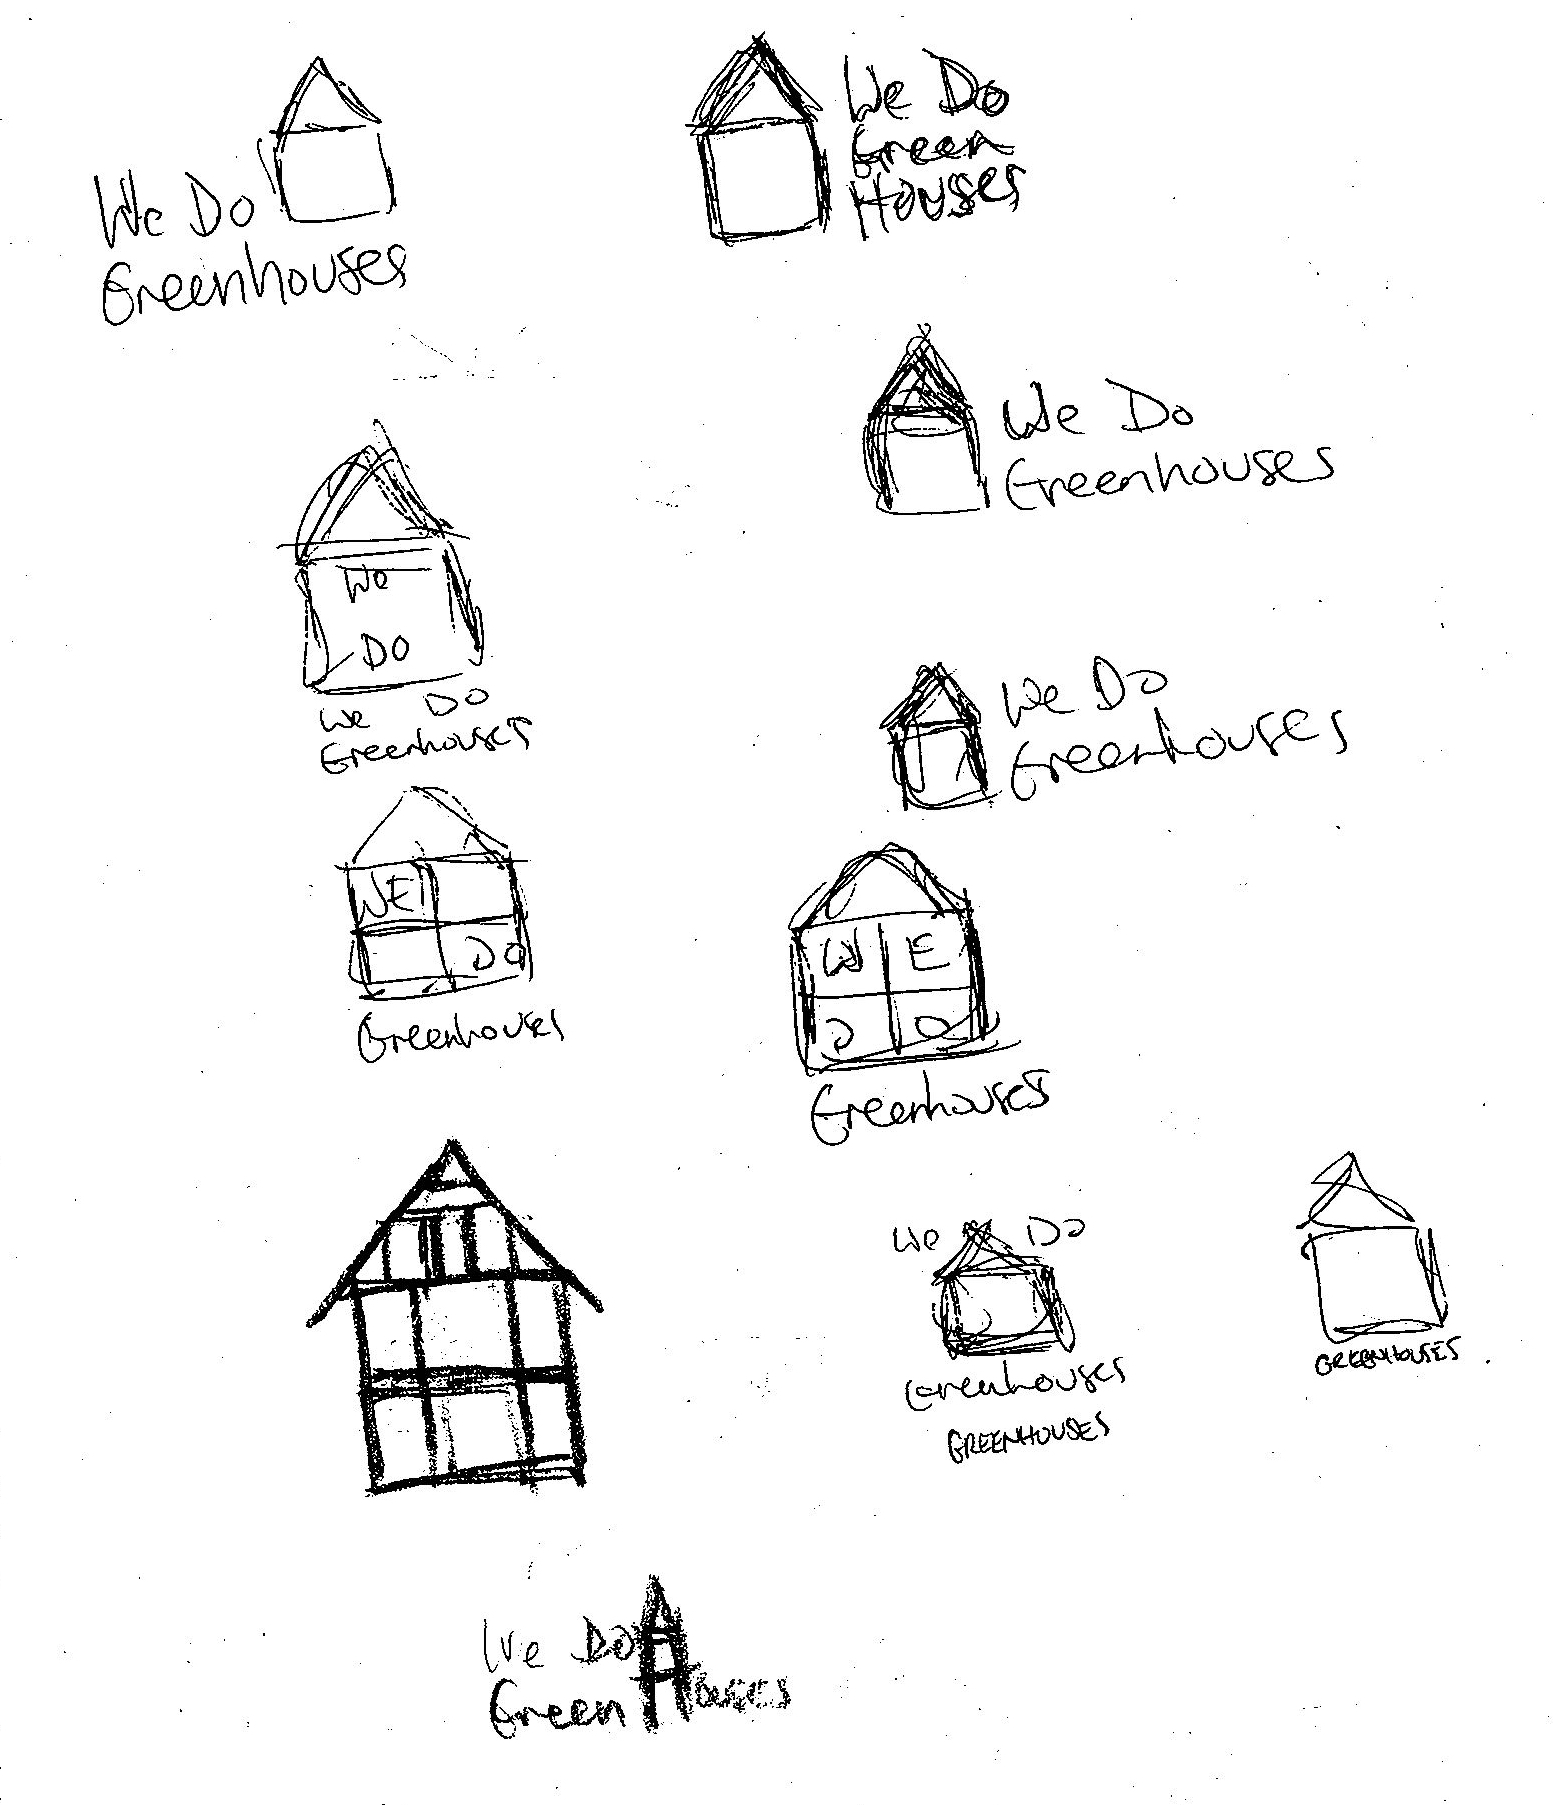 We Do
Greenhouses
We Do
Green
Houses
We Do
Greenhouses
We
Do
We Do
Greenhouses
We Do
Greenhouses
WE
DO
Greenhouses
W E
D O
Greenhouses
We Do
Greenhouses
GREENHOUSES
GREENHOUSES
We Do
GreenHouses